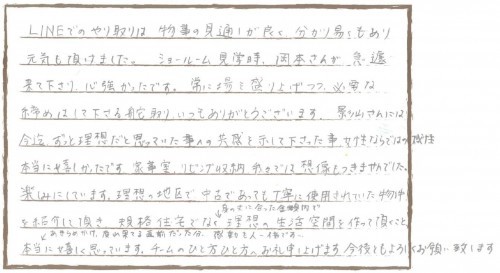 LINEでのやり取りは 物事の見通しが良く、分かり易くもあり
元気も頂けました。ショールーム見学時、岡本さんが 急遽
来て下さり、心強かったです。常に場を盛り上げつつ、必要な
締めはして下さる舵取り、いつもありがとうございます。影山さんには
今迄 ずっと理想だと思っていた事への共感を示して下さった事 女性ならではの感性
本当に嬉しかったです 家事室 リビング収納 私では 想像もつきませんでした。
楽しみにしています。理想の地区で 中古であっても丁寧に使用されていた物件
を紹介して頂き 規格住宅でなく 理想の生活空間を作って頂くこと
身の丈に合った金額内で
あきらめかけ、疲れ果てる直前だった分、感動も人一倍です
本当に嬉しく思っています。チームのひと方ひと方へ お礼申し上げます 今後ともよろしくお願い致します